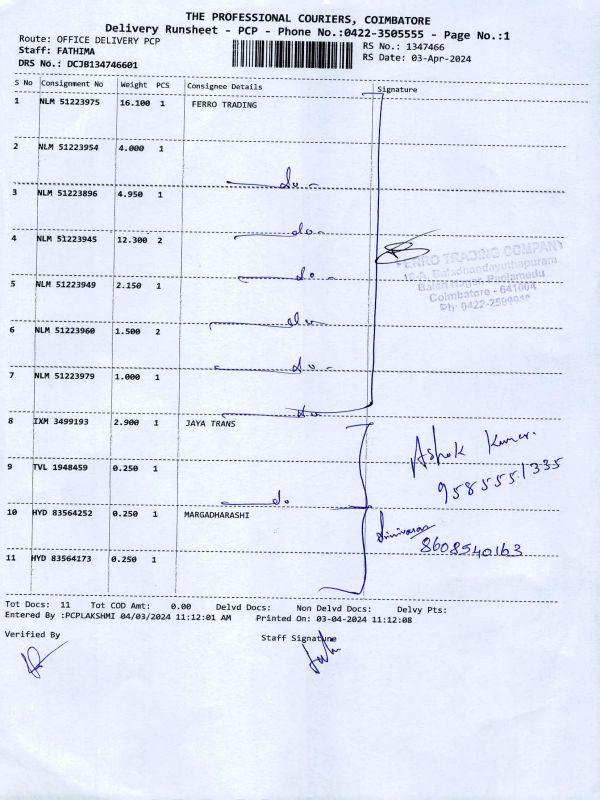 THE PROFESSIONAL COURIERS, COIMBATORE
Delivery Runsheet - PCP - Phone No.:0422-3505555 - Page No.:1
Route: OFFICE DELIVERY PCP
RS No.: 1347466
Staff: FATHIMA
RS Date: 03-Apr-2024
DRS No.: DCJB134746601
S No Consignment No Weight PCS Consignee Details Signature
1 NLM 51223975 16.100 1 FERRO TRADING
2 NLM 51223954 4.000 1
do
3 NLM 51223896 4.950 1
do
4 NLM 51223945 12.300 2
FERRO TRADING COMPANY
do
5 NLM 51223949 2.150 1
Coimbatore - 641004
do
6 NLM 51223960 1.500 2
do
7 NLM 51223979 1.000 1
do
8 IXM 3499193 2.900 1 JAYA TRANS
Ashok Kumar.
9 TVL 1948459 0.250 1
9585551335
do
10 HYD 83564252 0.250 1 MARGADHARASHI
Srinivasan
8608540163
11 HYD 83564173 0.250 1
Tot Docs: 11 Tot COD Amt: 0.00 Delvd Docs: Non Delvd Docs: Delvy Pts:
Entered By :PCPLAKSHMI 04/03/2024 11:12:01 AM Printed On: 03-04-2024 11:12:08
Verified By Staff Signature